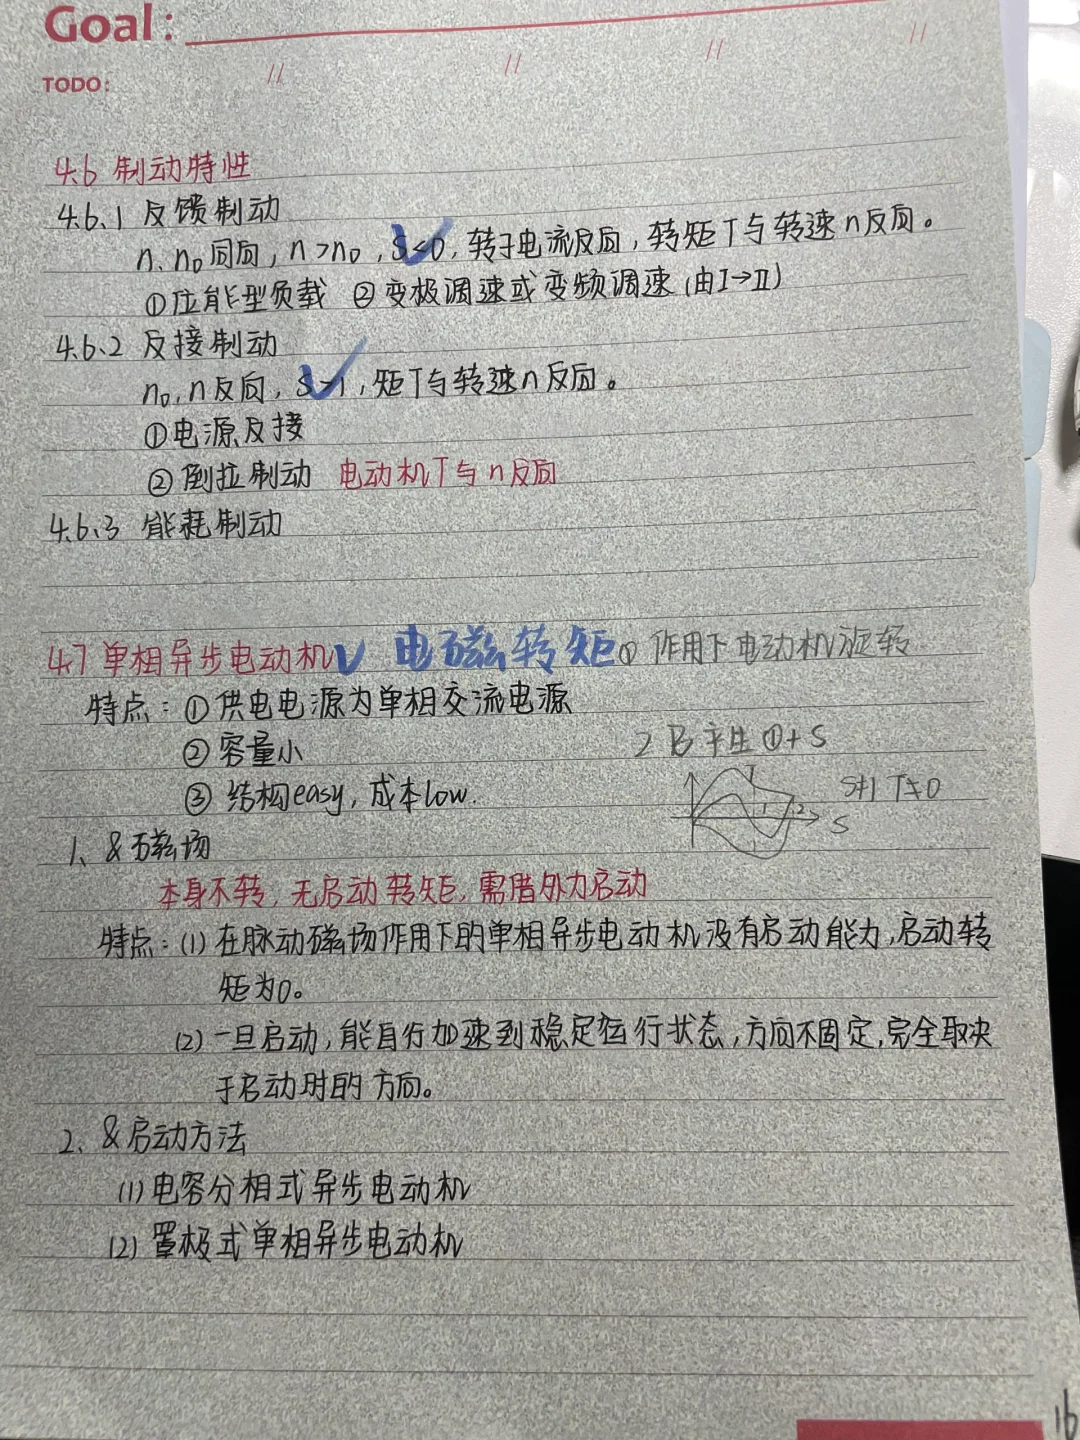 Goal:
TODO:
4.6 制动特性
4.6.1 反馈制动
n、n₀同向，n>n₀，S<0，转子电流反向，转矩T与转速n反向。
①位能型负载 ②变极调速或变频调速（由I→II）
4.6.2 反接制动
n₀,n反向，S>1，矩T与转速n反向。
①电源反接
②倒拉制动 电动机T与n反向
4.6.3 能耗制动
4.7 单相异步电动机 电磁转矩① 作用下电动机旋转
特点：①供电电源为单相交流电源
②容量小
2 B产生①+S
③结构easy，成本low.
S≠1 T≠0
T
1
2
S
1、&磁场
本身不转，无启动转矩，需借外力启动
特点：(1)在脉动磁场作用下的单相异步电动机没有启动能力，启动转
矩为0。
(2)一旦启动，能自行加速到稳定运行状态，方向不固定，完全取决
于启动时的方向。
2、&启动方法
(1)电容分相式异步电动机
(2)罩极式单相异步电动机
16